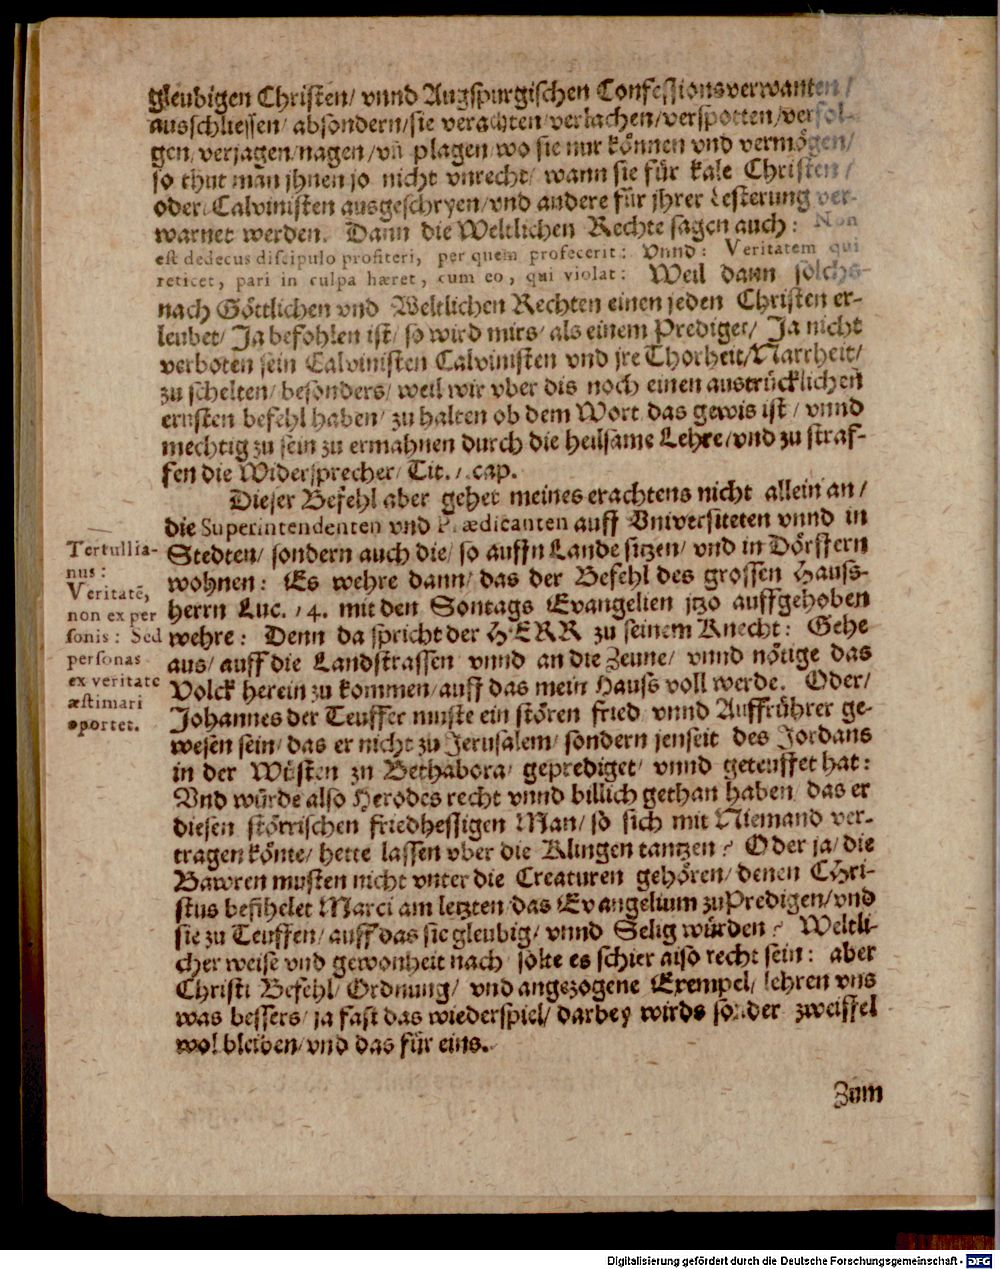 gleubigen Christen/ vnnd Augspurgischen Confessionsverwanten/
ausschliessen/ absondern/sie verachten/verlachen/verspotten/verfol-
gen/verjagen/nagen/vñ plagen/wo sie nur können vnd vermögen/
so thut man jhnen jo nicht vnrecht/ wann sie für kale Christen/
oder Calvinisten ausgeschryen/vnd andere für jhrer Lesterung ver-
warnet werden. Dann die Weltlichen Rechte sagen auch: Non
est dedecus discipulo profiteri, per quem profecerit: Vnnd: Veritatem qui
reticet, pari in culpa hæret, cum eo, qui violat: Weil dann solchs
nach Göttlichen vnd Weltlichen Rechten einen jeden Christen er-
leubet/ Ja befohlen ist/ so wird mirs/ als einem Prediger/ Ja nicht
verboten sein Calvinisten Calvinisten vnd jre Thorheit/Narrheit/
zu schelten/ besonders/ weil wir vber dis noch einen austrücklichen
ernsten befehl haben/ zu halten ob dem Wort das gewis ist/ vnnd
mechtig zu sein zu ermahnen durch die heilsame Lehre/vnd zu straf-
fen die Widersprecher/ Tit. 1. cap.
Dieser Befehl aber gehet meines erachtens nicht allein an/
die Superintendenten vnd Prædicanten auff Vniversiteten vnnd in
Stedten/ sondern auch die/ so auffn Lande sitzen/ vnd in Dörffern
wohnen: Es wehre dann/ das der Befehl des grossen Hauss-
herrn Luc. 14. mit den Sontags Evangelien jtzo auffgehoben
wehre: Denn da spricht der HERR zu seinem Knecht: Gehe
aus/ auff die Landstrassen vnnd an die Zeune/ vnnd nötige das
Volck herein zu kommen/auff das mein Hauss voll werde. Oder/
Johannes der Teuffer muste ein stören fried vnnd Auffrührer ge-
wesen sein/ das er nicht zu Jerusalem/ sondern jenseit des Jordans
in der Wüsten zu Bethabora/ geprediget/ vnnd geteuffet hat:
Vnd würde also Herodes recht vnnd billich gethan haben/ das er
diesen störrischen friedhessigen Man/ so sich mit Niemand ver-
tragen könte/ hette lassen vber die Klingen tantzen? Oder ja/ die
Bawren musten nicht vnter die Creaturen gehören/ denen Chri-
stus befihelet Marci am letzten/das Evangelium zu Predigen/vnd
sie zu Teuffen/ auff das sie gleubig/ vnnd Selig würden? Weltli-
cher weise vnd gewonheit nach solte es schier also recht sein: aber
Christi Befehl/ Ordnung/ vnd angezogene Exempel/ lehren vns
was bessers/ ja fast das wiederspiel/ darbey wirds sonder zweiffel
wol bleiben/vnd das für eins.
Zum
Tertullia-
nus:
Veritatē,
non ex per
sonis: Sed
personas
ex veritate
æstimari
oportet.
Digitalisierung gefördert durch die Deutsche Forschungsgemeinschaft - DFG